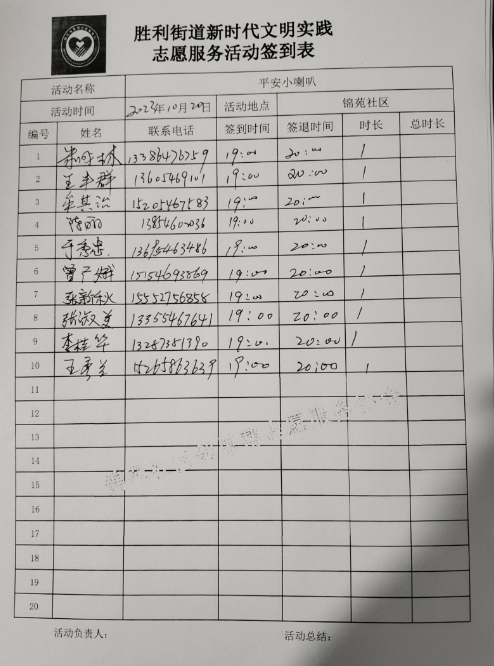 胜利街道新时代文明实践
志愿服务活动签到表
活动名称 平安小喇叭
活动时间 2023年10月20日 活动地点 锦苑社区
编号 姓名 联系电话 签到时间 签退时间 时长 总时长
1 19:00 20:00 1
2 王丰群 13605469101 19:00 20:00 1
3 牟其治 15205467583 19:00 20:00 1
4 陈丽 19:00 20:00 1
5 于秀忠 19:00 20:00 1
6 曾广娥 15154693869 19:00 20:00 1
7 张新秋 15552756858 19:00 20:00 1
8 张淑美 13355467641 19:00 20:00 1
9 李桂华 13287381390 19:00 20:00 1
10 王秀兰 15265863639 19:00 20:00 1
11
12
13
14
15
16
17
18
19
20
活动负责人: 活动总结: